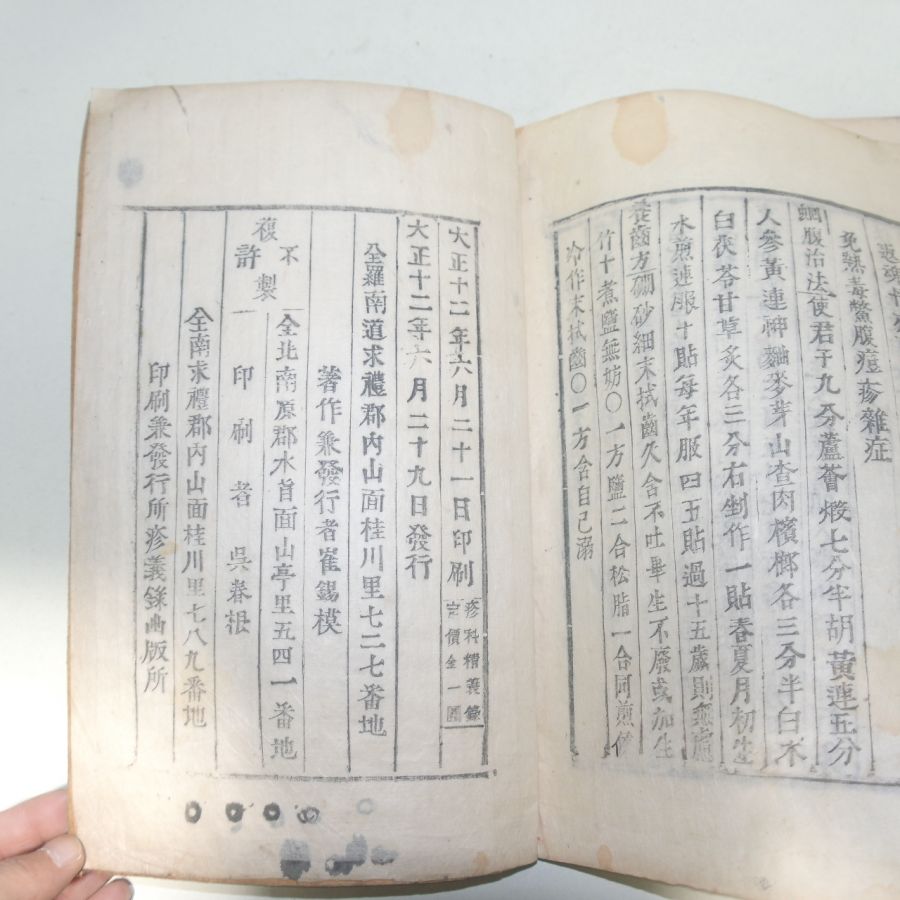 免熱毒鱉腹痘疹雜症
鱉腹治法使君子九分蘆薈煅七分半胡黃連五分
人參黃連神麯麥芽山查肉檳榔各三分半白朮
白茯苓甘草炙各三分右剉作一貼春夏月初生
水煎連服十貼每年服四五貼過十五歲則無慮
養齒方硼砂細末拭齒久含不吐畢生不廢或加生
竹十煮鹽無妨〇一方鹽二合松脂一合同煎
冷作末拭齒〇一方含自己溺
大正十二年六月二十一日印刷
疹科精義錄
定價金一圓
大正十二年六月二十九日發行
全羅南道求禮郡內山面桂川里七二七番地
著作兼發行者崔錫模
不許複製
全北南原郡水旨面山亭里五四一番地
印刷者 吳春根
全南求禮郡內山面桂川里七八九番地
印刷兼發行所疹義錄出版所